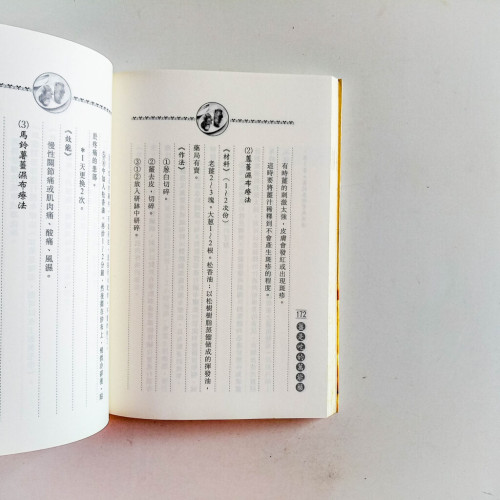 有時薑的刺激太強，皮膚會發紅或出現斑疹。
這時要將薑汁稀釋到不會產生斑疹的程度。
⑵蔥薑濕布療法
《材料》（1/2次份）
老薑2/3塊。大蔥1/2根。松香油：以松樹樹脂蒸餾製成的揮發油，
藥局有賣。
《作法》
①蔥白切碎。
②薑去皮，切碎。
③①②放入研缽中研碎。
172
於疼痛的患部。
●1天更換2次。
《效能》
慢性關節痛或肌肉痛、酸痛、風濕。
⑶馬鈴薯薑濕布療法